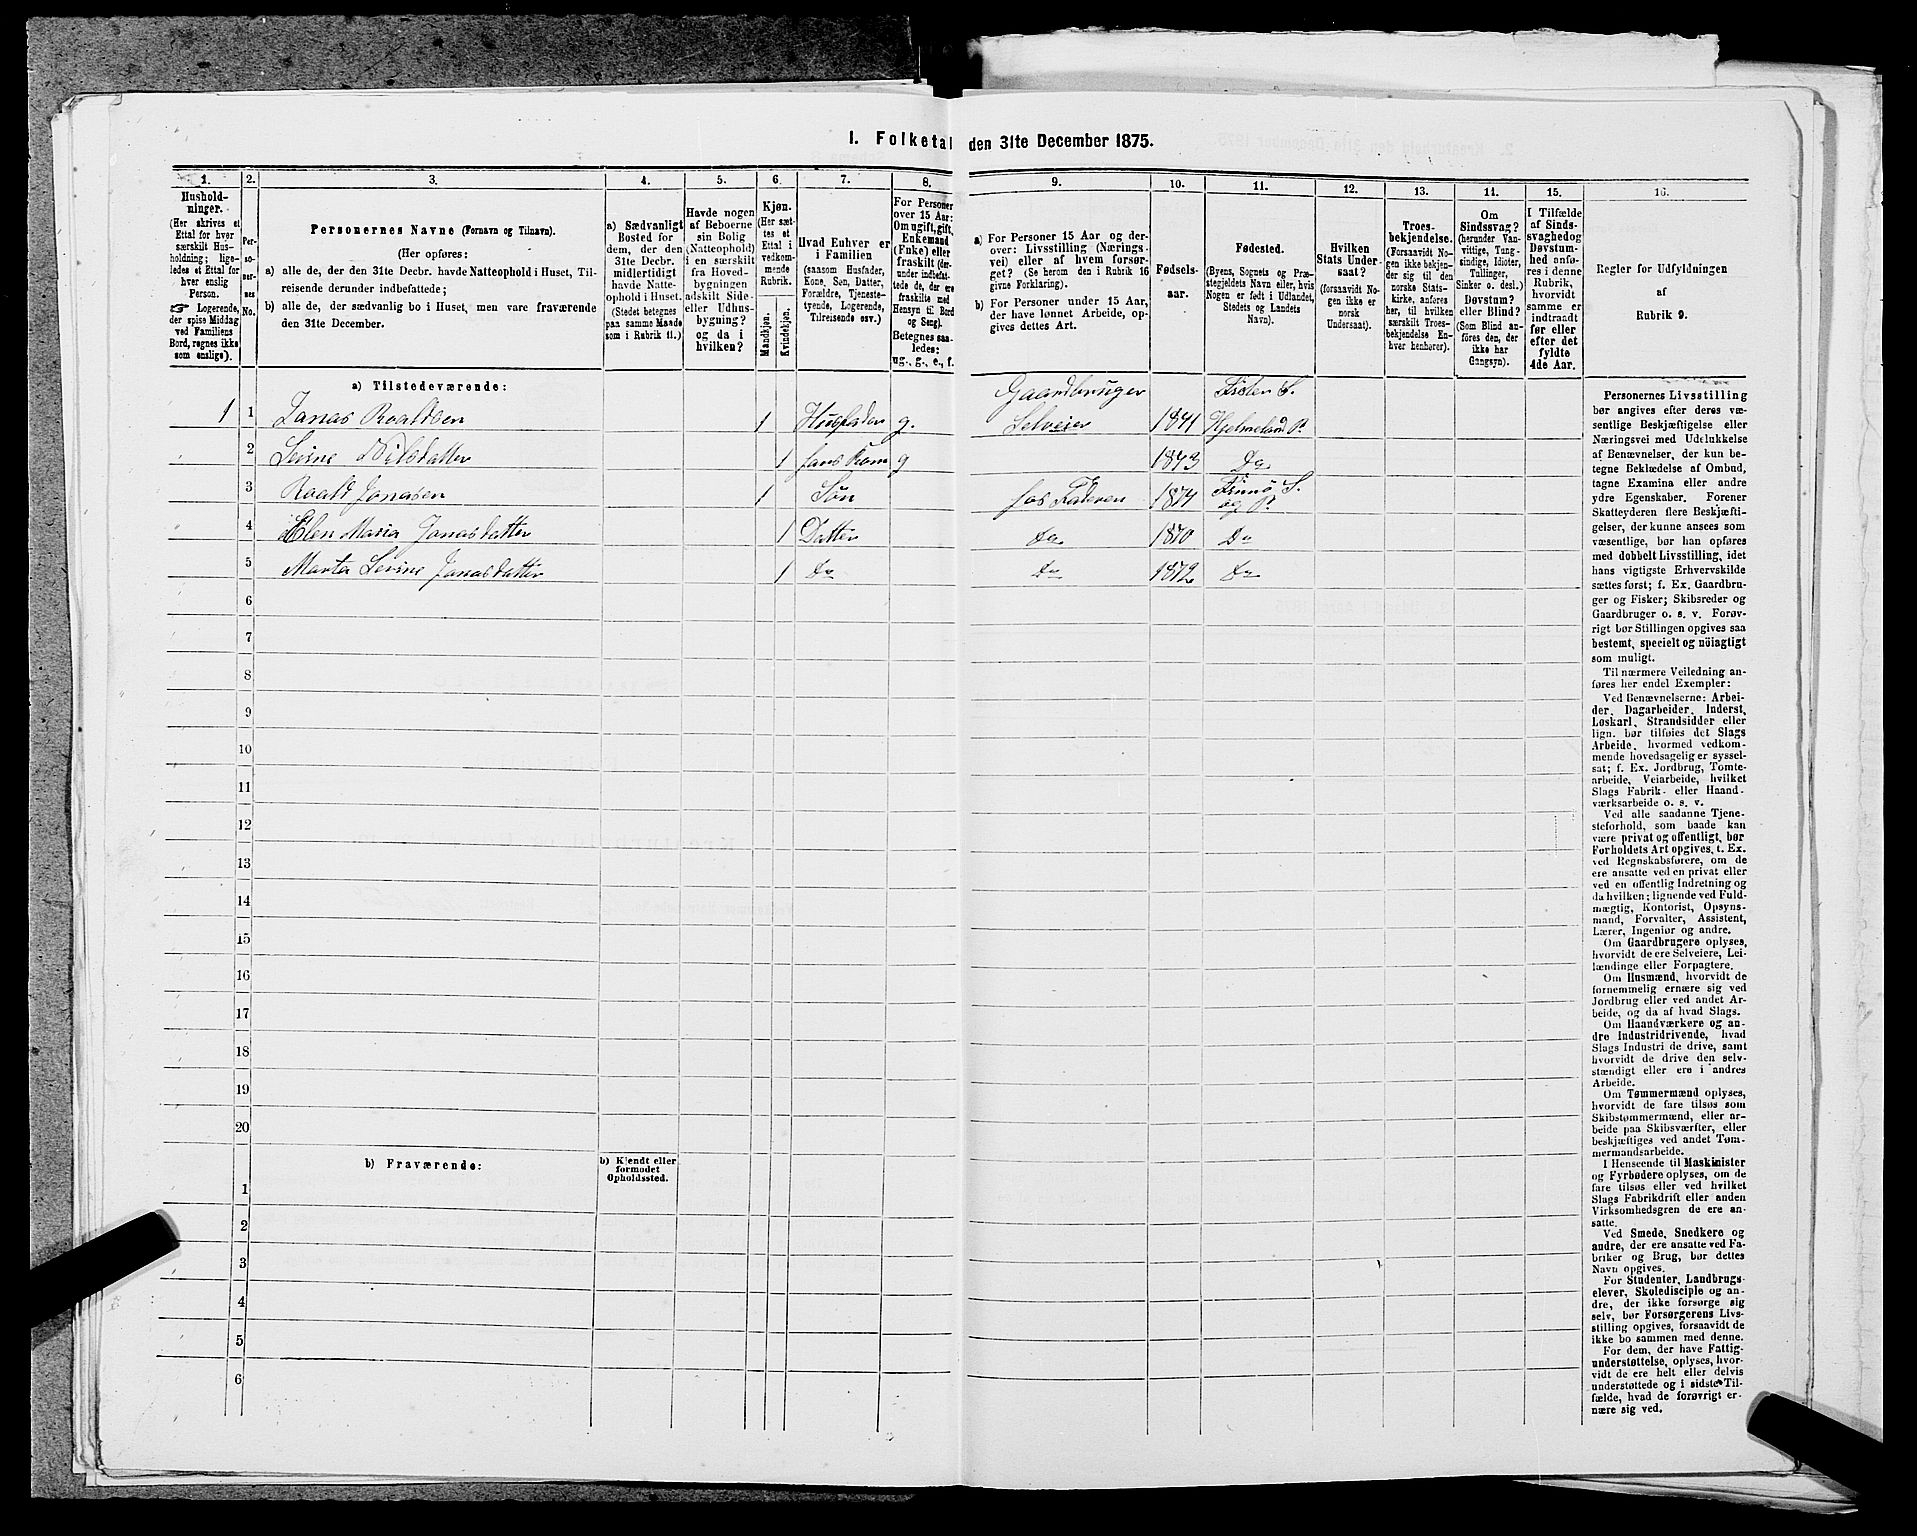 I. Folketal den 31te December 1875.
1.
Hushold-
ninger.
(Her skrives et
Ettal for hver
særskilt Hus-
holdning; lige-
ledes et Ettal for
hver enslig
Person.
Logerende,
der spise Middag
ved Familiens
Bord, regnes ikke
som enslige).
2.
Per-
so-
ner-
nes
No.
3.
Personernes Navne (Fornavn og Tilnavn).
(Her opføres:
a) alle de, der den 31te Decbr. havde Natteophold i Huset, Til-
reisende derunder indbefattede;
b) alle de, der sædvanlig bo i Huset, men vare fraværende
den 31te December.
4.
a) Sædvanligt
Bosted for
dem, der den
31te Decbr.
midlertidigt
havde Natte-
ophold i Huset.
(Stedet betegnes
paa samme Maade
som i Rubrik 11.)
5.
Havde nogen
af Beboerne
sin Bolig
(Natteophold)
i en særskilt
fra Hoved-
bygningen
adskilt Side-
eller Udhus-
bygning?
og da i
hvilken?
6.
Kjøn.
(Her sæt-
tes et
Ettal i
vedkom-
mende
Rubrik.
Mandkjøn.
Kvindekjøn.
7.
Hvad Enhver er
i Familien
(saasom Husfader,
Kone, Søn, Datter,
Forældre, Tjeneste-
tyende, Logerende,
Tilreisende osv.)
8.
For Personer
over 15 Aar:
Om ugift, gift,
Enkemand
(Enke) eller
fraskilt (der-
under indbefat-
tede de, der ere
fraskilte med
Hensyn til Bord
og Seng).
Betegnes saa-
ledes:
ug., g., e., f.
9.
a) For Personer 15 Aar og der-
over: Livsstilling (Nærings-
vei) eller af hvem forsør-
get? (Se herom den i Rubrik 16
givne Forklaring).
b) For Personer under 15 Aar,
der have lønnet Arbeide, op-
gives dettes Art.
10.
Fødsels-
aar.
11.
Fødested.
(Byens, Sognets og Præ-
stegjeldets Navn eller, hvis
Nogen er født i Udlandet,
Stedets og Landets
Navn).
12.
Hvilken
Stats Under-
saat?
(forsaavidt No-
gen ikke er
norsk
Undersaat).
13.
Troes-
bekjendelse.
(Forsaavidt No-
gen ikke bekjen-
der sig til den
norske Stats-
kirke, anføres
her, til hvilken
særskilt Troes-
bekjendelse En-
hver henhører).
14.
Om
Sindssvag?
(herunder Van-
vittige, Tung-
sindige, Idioter,
Tullinger,
Sinker o. desl.)
Døvstum?
eller Blind?
(Som Blind an-
føres den, der
ikke har
Gangsyn).
15.
I Tilfælde
af Sinds-
svaghed og
Døvstum-
hed anfø-
res i denne
Rubrik,
hvorvidt
samme er
indtraadt
før eller
efter det
fyldte
4de Aar.
16.
Regler for Udfyldningen
af
Rubrik 9.
a) Tilstedeværende:
1 1 Jonas Roaldsen 1 Husfader g. Gaardbruger Selveier 1841 Fister S. Hjelmeland P.
2 Serine Nilsdatter 1 hans Kone g 1843 Do
3 Roald Jonasen 1 Søn hos Faderen 1874 S. og P.
4 Elen Maria Jonasdatter 1 Datter Do. 1870 Do
5 Marta Serine Jonasdatter 1 Do Do 1872 Do
6
7
8
9
10
11
12
13
14
15
16
17
18
19
20
b) Fraværende:
b) Kjendt eller
formodet
Opholdssted.
1
2
3
4
5
6
Personernes Livsstilling
bør angives efter deres væ-
sentlige Beskjæftigelse eller
Næringsvei med Udelukkelse
af Benævnelser, der kun be-
tegne Beklædelse af Ombud,
tagne Examina eller andre
ydre Egenskaber. Forener
Skatteyderen flere Beskjæfti-
gelser, der kunne ansees som
væsentlige, bør han opføres
med dobbelt Livsstilling, idet
hans vigtigste Erhvervskilde
sættes først; f. Ex. Gaardbru-
ger og Fisker; Skibsreder og
Gaardbruger o. s. v. Forøv-
rigt bør Stillingen opgives saa
bestemt, specielt og nøiagtigt
som muligt.
Til nærmere Veiledning an-
føres her endel Exempler:
Ved Benævnelserne: Arbei-
der, Dagarbeider, Inderst,
Løskarl, Strandsidder eller
lign. bør tilføies det Slags
Arbeide, hvormed vedkom-
mende hovedsagelig er syssel-
sat; f. Ex. Jordbrug, Tomte-
arbeide, Veiarbeide, hvilket
Slags Fabrik- eller Haand-
værksarbeide o. s. v.
Ved alle saadanne Tjene-
steforhold, som baade kan
være privat og offentligt, bør
Forholdets Art opgives, t. Ex.
ved Regnskabsførere, om de
ere ansatte ved en privat eller
ved en offentlig Indretning og
da hvilken; lignende ved Fuld-
mægtig, Kontorist, Opsyns-
mand, Forvalter, Assistent,
Lærer, Ingeniør og andre.
Om Gaardbrugere oplyses,
hvorvidt de ere Selveiere, Lei-
lændinge eller Forpagtere.
Om Husmænd, hvorvidt de
fornemmelig ernære sig ved
Jordbrug eller ved andet Ar-
beide, og da af hvad Slags.
Om Haandværkere og an-
dre Industridrivende, hvad
Slags Industri de drive, samt
hvorvidt de drive den selv-
stændigt eller ere i andres
Arbeide.
Om Tømmermænd oplyses,
hvorvidt de fare tilsøs som
Skibstømmermænd, eller ar-
beide paa Skibsværfter, eller
beskjæftiges ved andet Tøm-
mermandsarbeide.
I Henseende til Maskinister
og Fyrbødere oplyses, om de
fare tilsøs eller ved hvilket
Slags Fabrikdrift eller anden
Virksomhedsgren de ere an-
satte.
Ved Smede, Snedkere og
andre, der ere ansatte ved Fa-
briker og Brug, bør dettes
Navn opgives.
For Studenter, Landbrugs-
elever, Skoledisciple og an-
dre, der ikke forsørge sig
selv, bør Forsørgerens Livs-
stilling opgives, forsaavidt de
ikke bo sammen med denne.
For dem, der have Fattig-
understøttelse, oplyses, hvor-
vidt de ere helt eller delvis
understøttede og i sidste Til-
fælde, hvad de forøvrigt er-
nære sig ved.